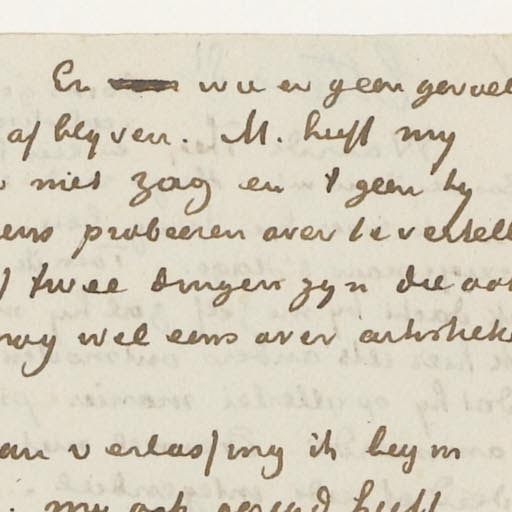 En wu er geen gevoel
afblyven. M. heeft my
niet zag en 't geen hy
eens probeeren over te vertell
twee dingen zyn die ook
nog wel eens over artistieke
van verlassing ik begin
my ook gezegd heeft